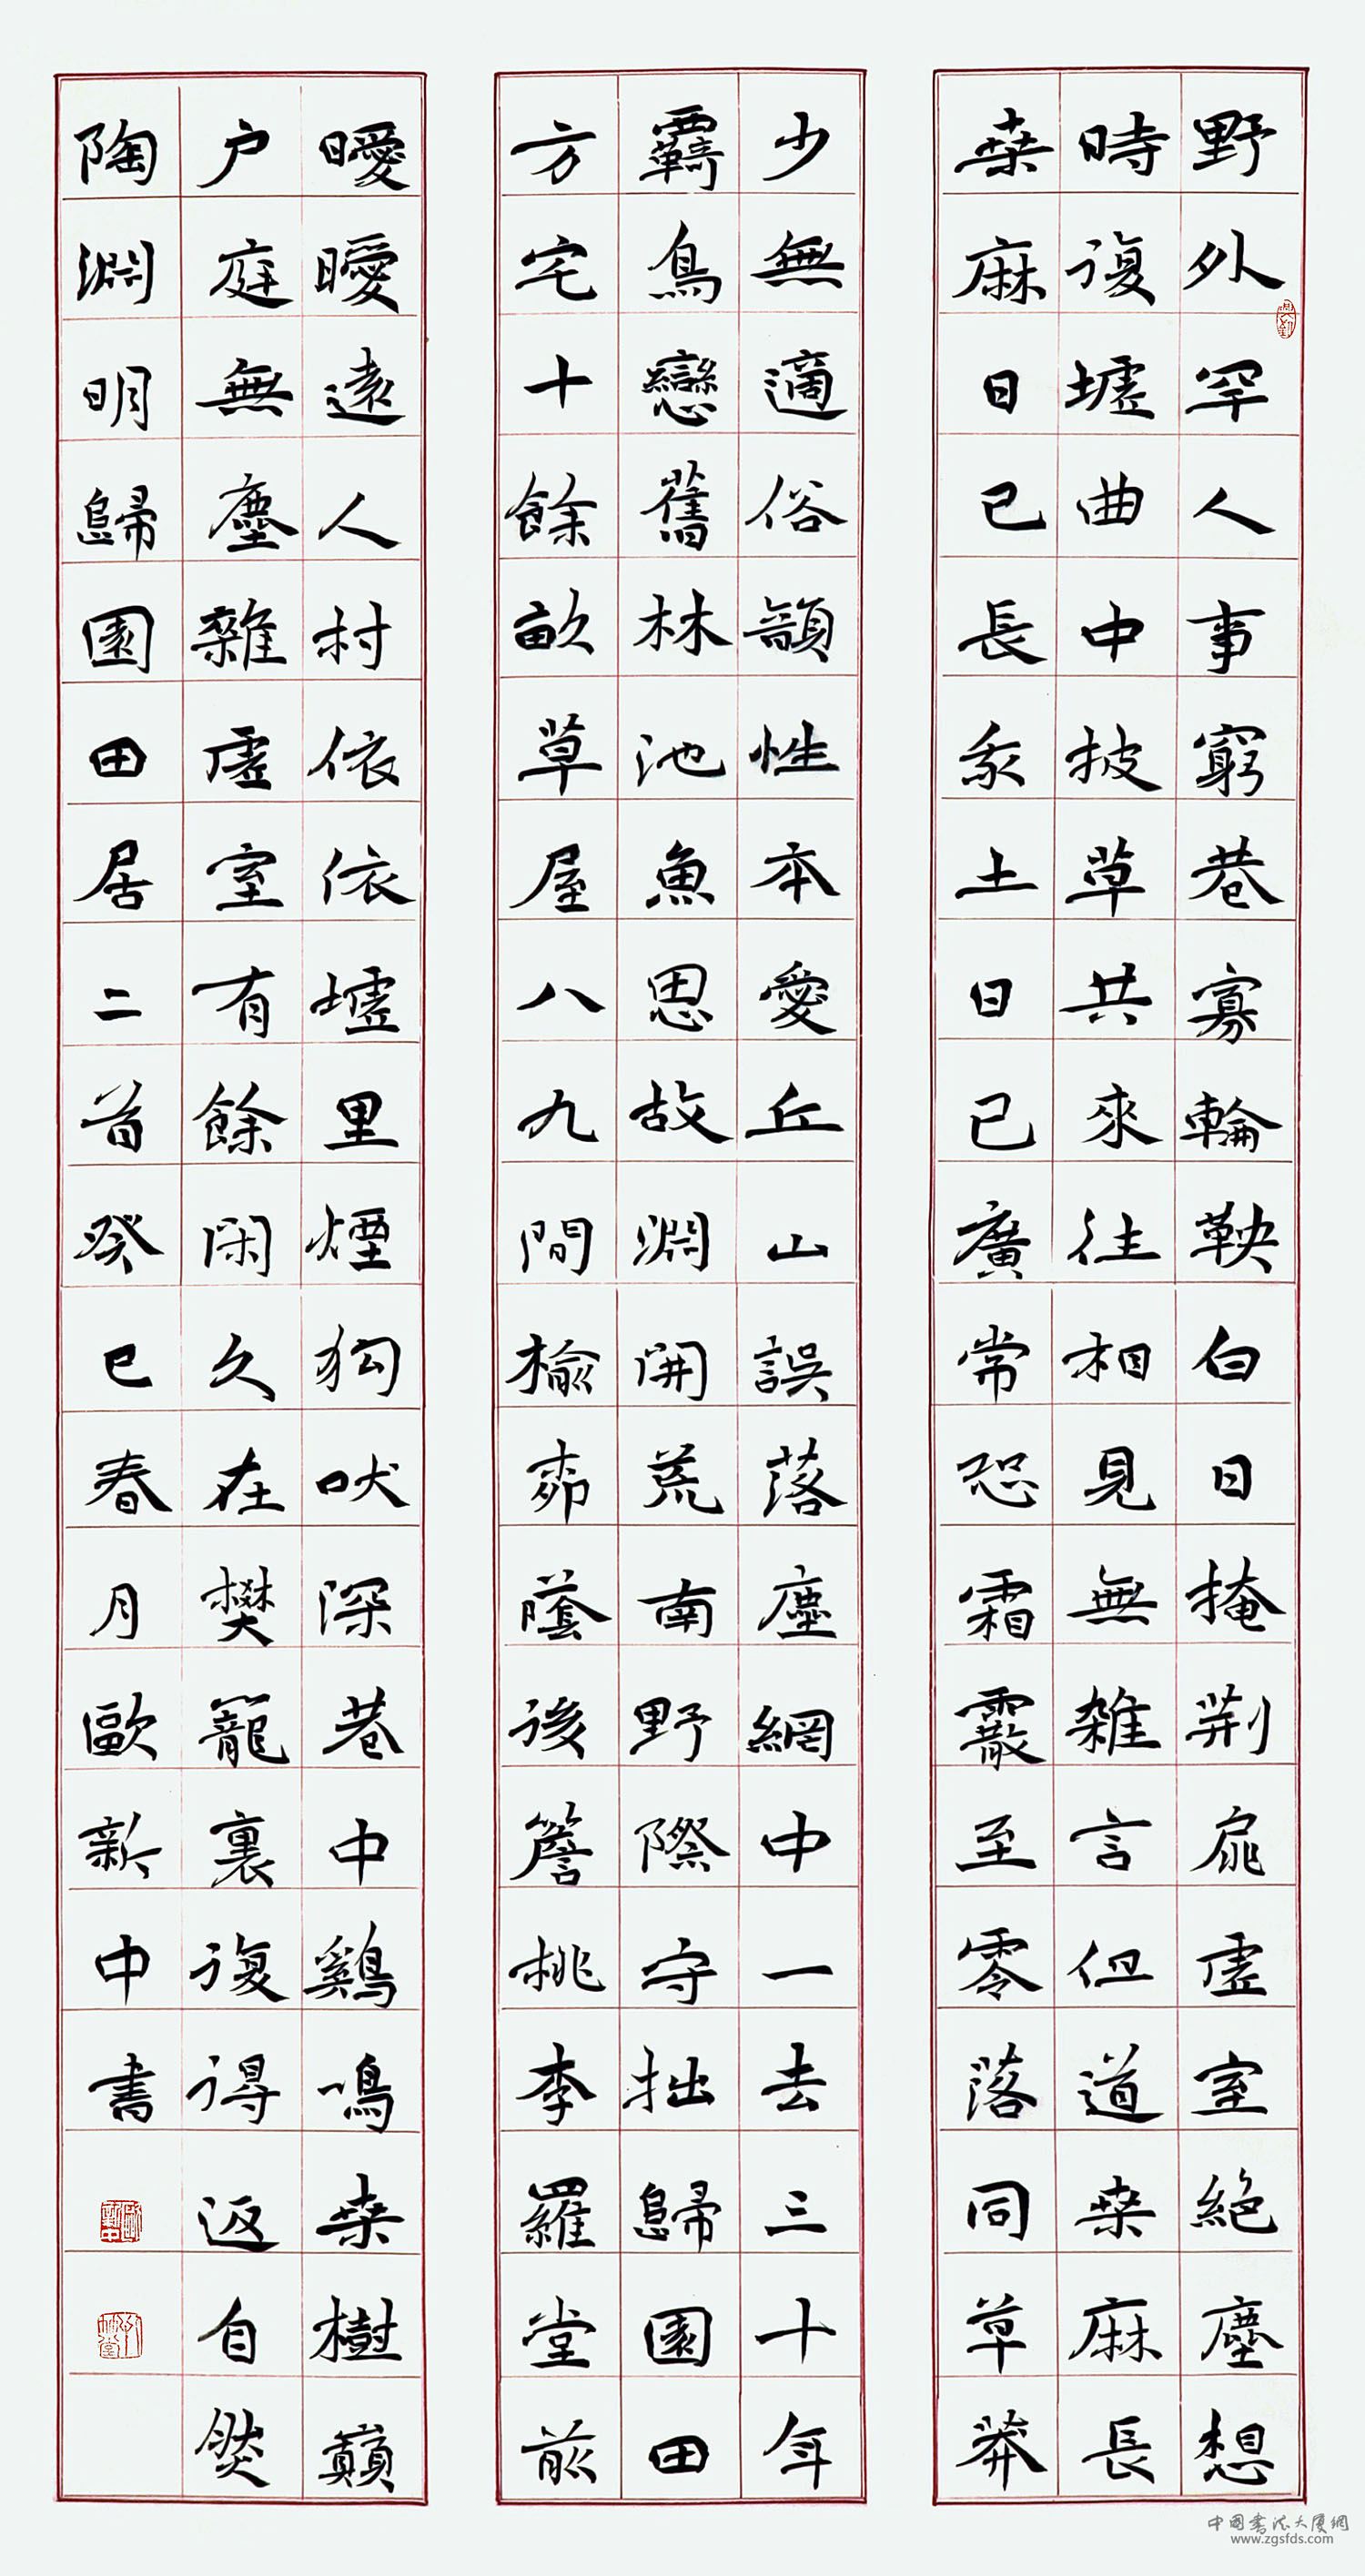 野外罕人事窮巷寡輪鞅白日掩荆扉虛室絕塵想
時復墟曲中披草共來往相見無雜言但道桑麻長
桑麻日已長我土日已廣常恐霜霰至零落同草莽
少無適俗韻性本愛丘山誤落塵網中一去三十年
覉鳥戀舊林池魚思故淵開荒南野際守拙歸園田
方宅十餘畝草屋八九間榆柳蔭後簷桃李羅堂前
曖曖遠人村依依墟里煙狗吠深巷中鷄鳴桑樹巔
户庭無塵雜虛室有餘閑久在樊籠裏復得返自然
陶淵明歸園田居二首癸巳春月歐新中書
中國書法大厦網
www.zgsfds.com